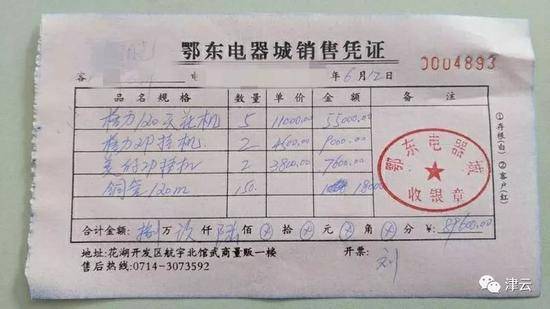 鄂东电器城销售凭证
0004893
客 电 年6月12日
品名规格 数量 单价 金额 备注
格力120天花机 5 11000.00 55000.00
格力2P挂机 2 4500.00 9000.00
美的2P挂机 2 3800.00 7600.00
铜管120m 150. 18000
鄂东电器城
收银章
①存根(白) ②客户(红)
合计金额: 捌万玖仟陆佰⊗拾⊗元⊗角⊗分 ¥: 89600.00
地址:花湖开发区航宇北馆武商量贩一楼 开票: 刘
售后热线:0714-3073592
津云